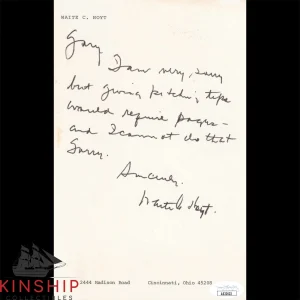 WAITE C. HOYT
Gary,
I am very, sorry
but giving pitching tips
would require pages -
and I cannot do that
Sorry.
Sincerely,
Waite C Hoyt.
2444 Madison Road Cincinnati, Ohio 45208
KINSHIP
COLLECTIBLES